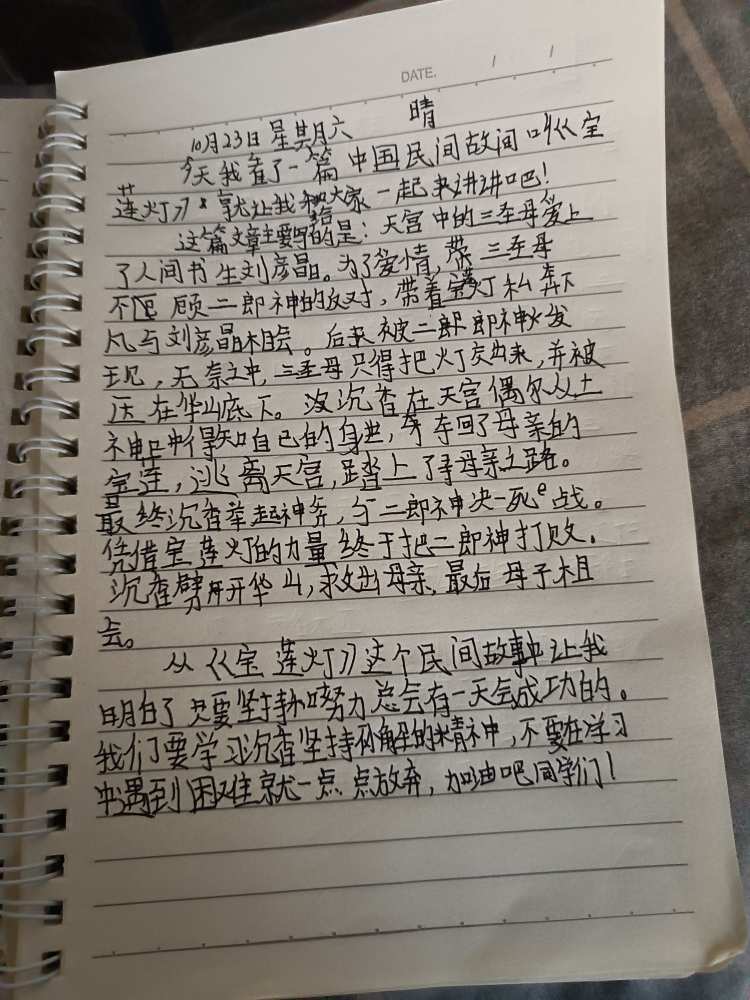 DATE. / /
10月23日 星其月六 晴
今天我看了一篇中国民间故间叫《宝
莲灯》就让我给大家一起来讲讲吧!
这篇文章主要写的是:天宫中的三圣母爱上
了人间书生刘彦晶。为了爱情,三圣母
不顾二郎神的反对,带着宝灯私奔下
凡与刘彦晶相会。后来被二郎郎神发
现,无奈之中,三圣母只得把灯交出来,并被
压在华山底下。沉香在天宫偶尔从土
神口中得知自己的身世,夺回了母亲的
宝莲,逃离天宫,踏上了寻母亲之路。
最终沉香举起神斧,与二郎神决一死战。
凭借宝莲灯的力量终于把二郎神打败。
沉香劈开华山,救出母亲。最后母子相
会。
从《宝莲灯》这个民间故事中让我
明白了只要坚持和努力总会有一天会成功的。
我们要学习沉香坚持不懈的精神,不要在学习
中遇到困难就一点点放弃,加油吧同学们!